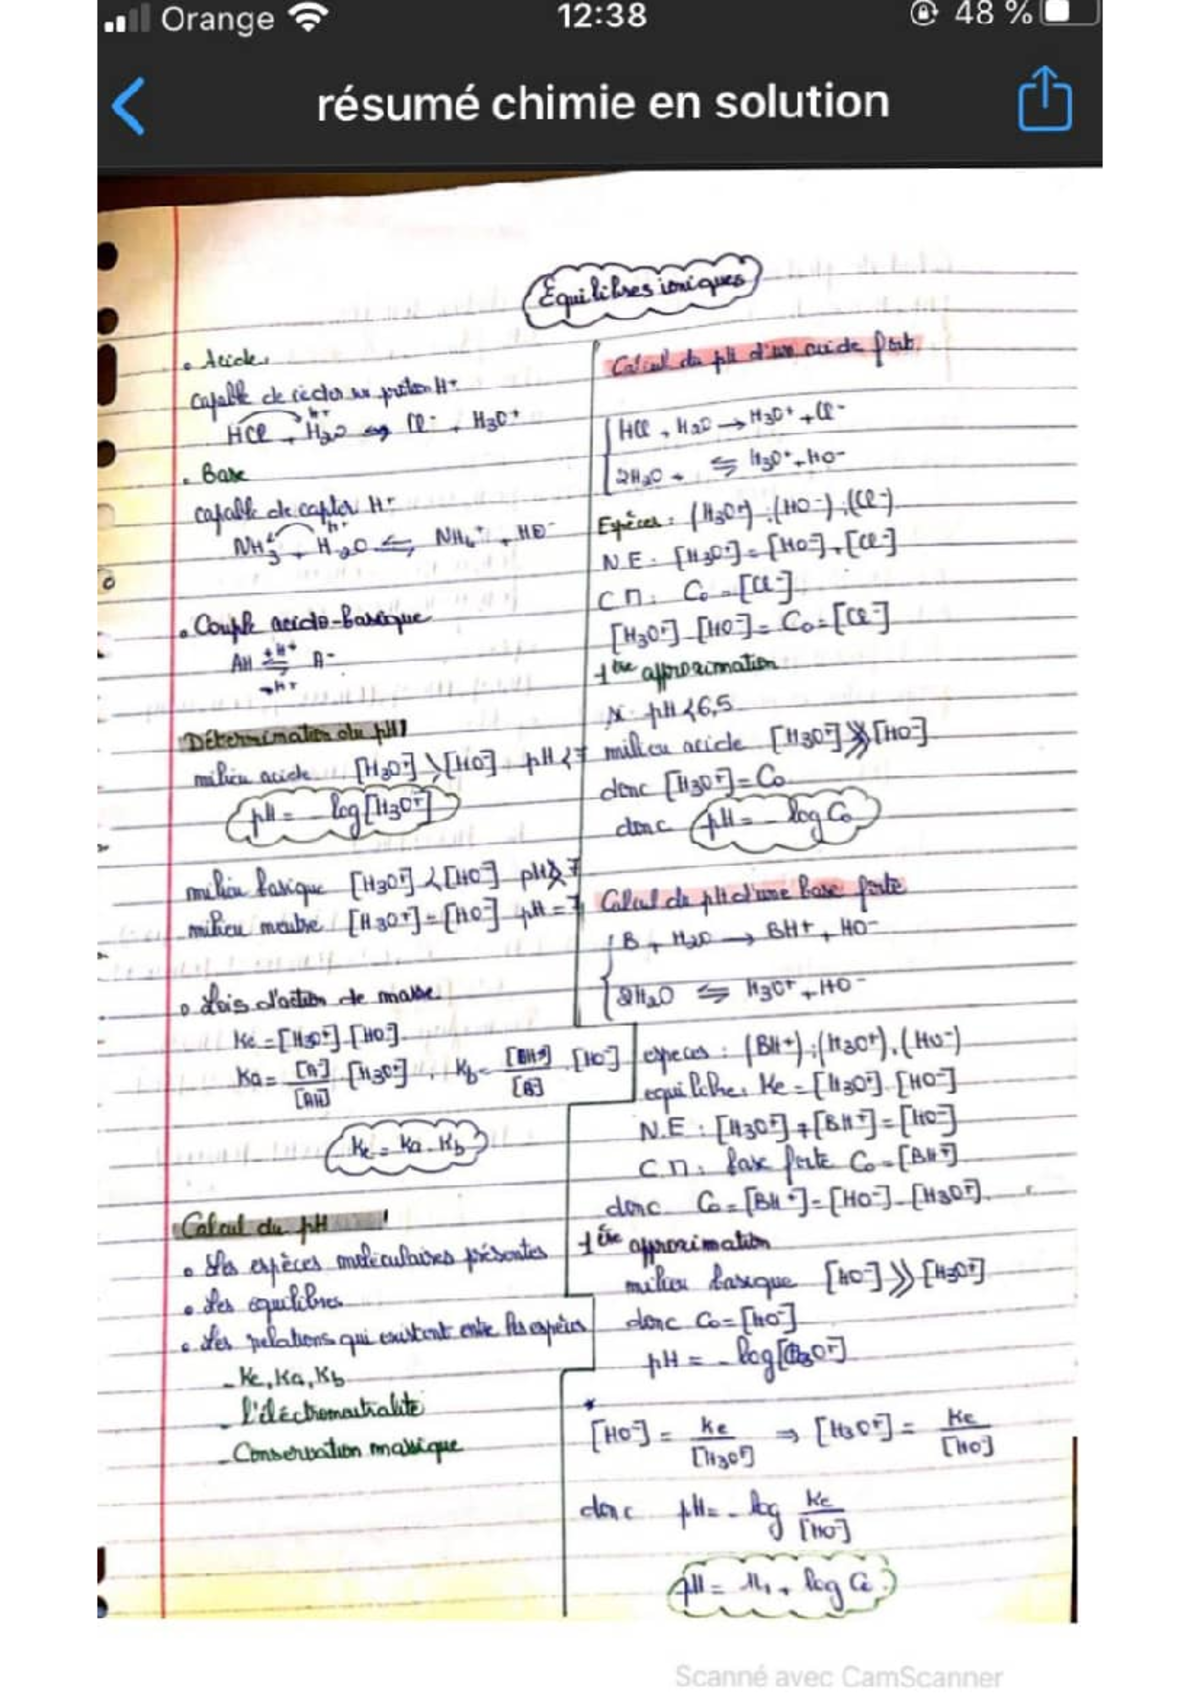 Orange 12:38 48 %
résumé chimie en solution
Équilibres ioniques
• Acide
capable de céder un proton H+
H+
HCl + H2O ⇋ Cl- + H3O+
• Base
capable de capter H+
H+
NH3 + H2O ⇋ NH4+ + HO-
• Couple acido-basique
+H+
AH ⇋ A-
-H+
Détermination du pH
milieu acide [H3O+] > [HO-] pH < 7
pH = - log[H3O+]
milieu basique [H3O+] < [HO-] pH > 7
milieu neutre [H3O+] = [HO-] pH = 7
• Lois d'action de masse
Ke = [H3O+].[HO-].
Ka = [A-]/[AH] . [H3O+] , Kb = [BH+]/[B] . [HO-]
Ke = Ka . Kb
Calcul du pH
• Les espèces moléculaires présentes
• Les équilibres
• Les relations qui existent entre les espèces
- Ke, Ka, Kb
- l'éléctroneutralité
- Conservation massique
Calcul du pH d'un acide fort
HCl + H2O → H3O+ + Cl-
2H2O ⇋ H3O+ + HO-
Espèces : (H3O+) ; (HO-) ; (Cl-)
N.E : [H3O+] = [HO-] + [Cl-]
C.M : C0 = [Cl-]
[H3O+] - [HO-] = C0 = [Cl-]
1ère approximation
pH < 6,5
milieu acide [H3O+] >> [HO-]
donc [H3O+] = C0
donc pH = - log C0
Calcul de pH d'une base forte
B + H2O → BH+ + HO-
2H2O ⇋ H3O+ + HO-
especes : (BH+) ; (H3O+) , (HO-)
equilibre : Ke = [H3O+] . [HO-]
N.E : [H3O+] + [BH+] = [HO-]
C.M : base forte C0 = [BH+]
donc C0 = [BH+] = [HO-] - [H3O+]
1ère approximation
milieu basique [HO-] >> [H3O+]
donc C0 = [HO-]
pH = - log[H3O+]
*
[HO-] = Ke/[H3O+] ⇒ [H3O+] = Ke/[HO]
donc pH = - log Ke/[HO-]
pH = 14 + log C0
Scanné avec CamScanner